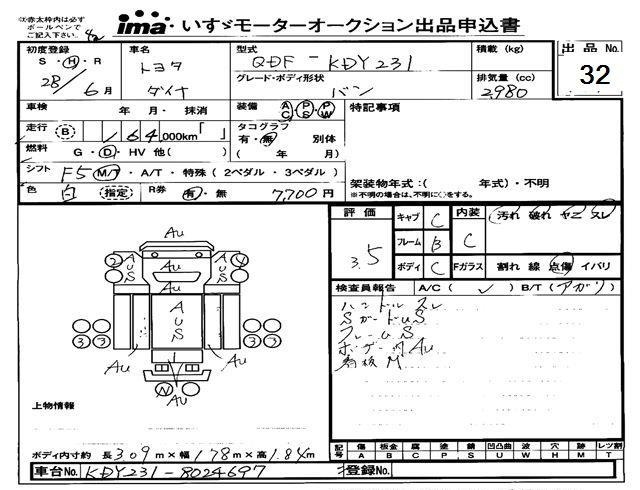 ※赤太枠内は必ず
ボールペンで
ご記入下さい。
ima いすゞモーターオークション出品申込書
初度登録 車名 型式 積載(kg) 出品No.
S・H・R トヨタ QDF-KDY231 32
28/6月 ダイナ グレード・ボディ形状 バン 排気量(cc) 2980
車検 年 月・抹消 装備 AC・PS・PW 特記事項
走行 B 164,000km「 」 タコグラフ 有・無 別体
燃料 G・D・HV 他( ) ( 年 月)
シフト F5 M/T・A/T・特殊(2ペダル・3ペダル) 架装物年式:( 年式)・不明
色 白 指定 R券 有・無 7,700円 ※不明の場合は、不明に○をする。
評価 3.5 キャブ C 内装 C 汚れ 破れ ヤニ スレ
フレーム B
ボディ C Fガラス 割れ 線 点傷 イバリ
検査員報告 A/C( ✓ ) B/T(アガリ)
ハンドルスレ
SガードUS
フレームS
ボデー内AU
看板M
AU
2 AUS AU AUS 4
AU
AUS
3 3 AU AU 3 3
N
AU
上物情報
ボディ内寸約 長3.09m×幅1.78m×高1.84m
記号 傷 板金 腐 塗 錆 凹凸曲 波 穴 跡 レツ割
A B C P S U W H M T
車台No. KDY231-8024697 登録No.